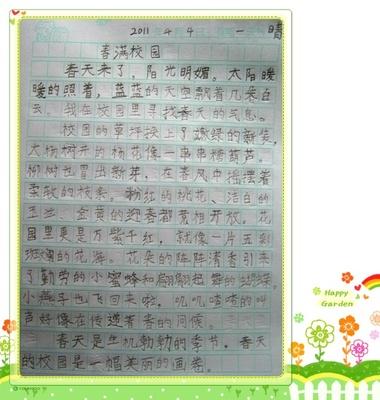 2011 4 4 一 晴
春满校园
春天来了，阳光明媚。太阳暖
暖的照着，蓝蓝的天空飘着几朵白
云。我在校园里寻找春天的气息。
校园的草坪换上了嫩绿的新装，
大杨树开的杨花像一串串糖葫芦。
柳树也冒出新芽，在春风中摇摆着
柔软的枝条。粉红的桃花、洁白的
玉兰、金黄的迎春都竞相开放。花
园里更是万紫千红，就像一片五彩
斑斓的花海。花朵的阵阵清香引来
了勤劳的小蜜蜂和翩翩起舞的蝴蝶。
小燕子也飞回来啦。叽叽喳喳的叫
声好像在传递着春的问候。
春天是生机勃勃的季节。春天
的校园是一幅美丽的画卷。
Happy
Garden